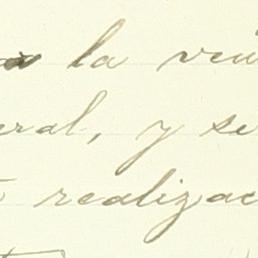 la ven
eral, y se
realizac